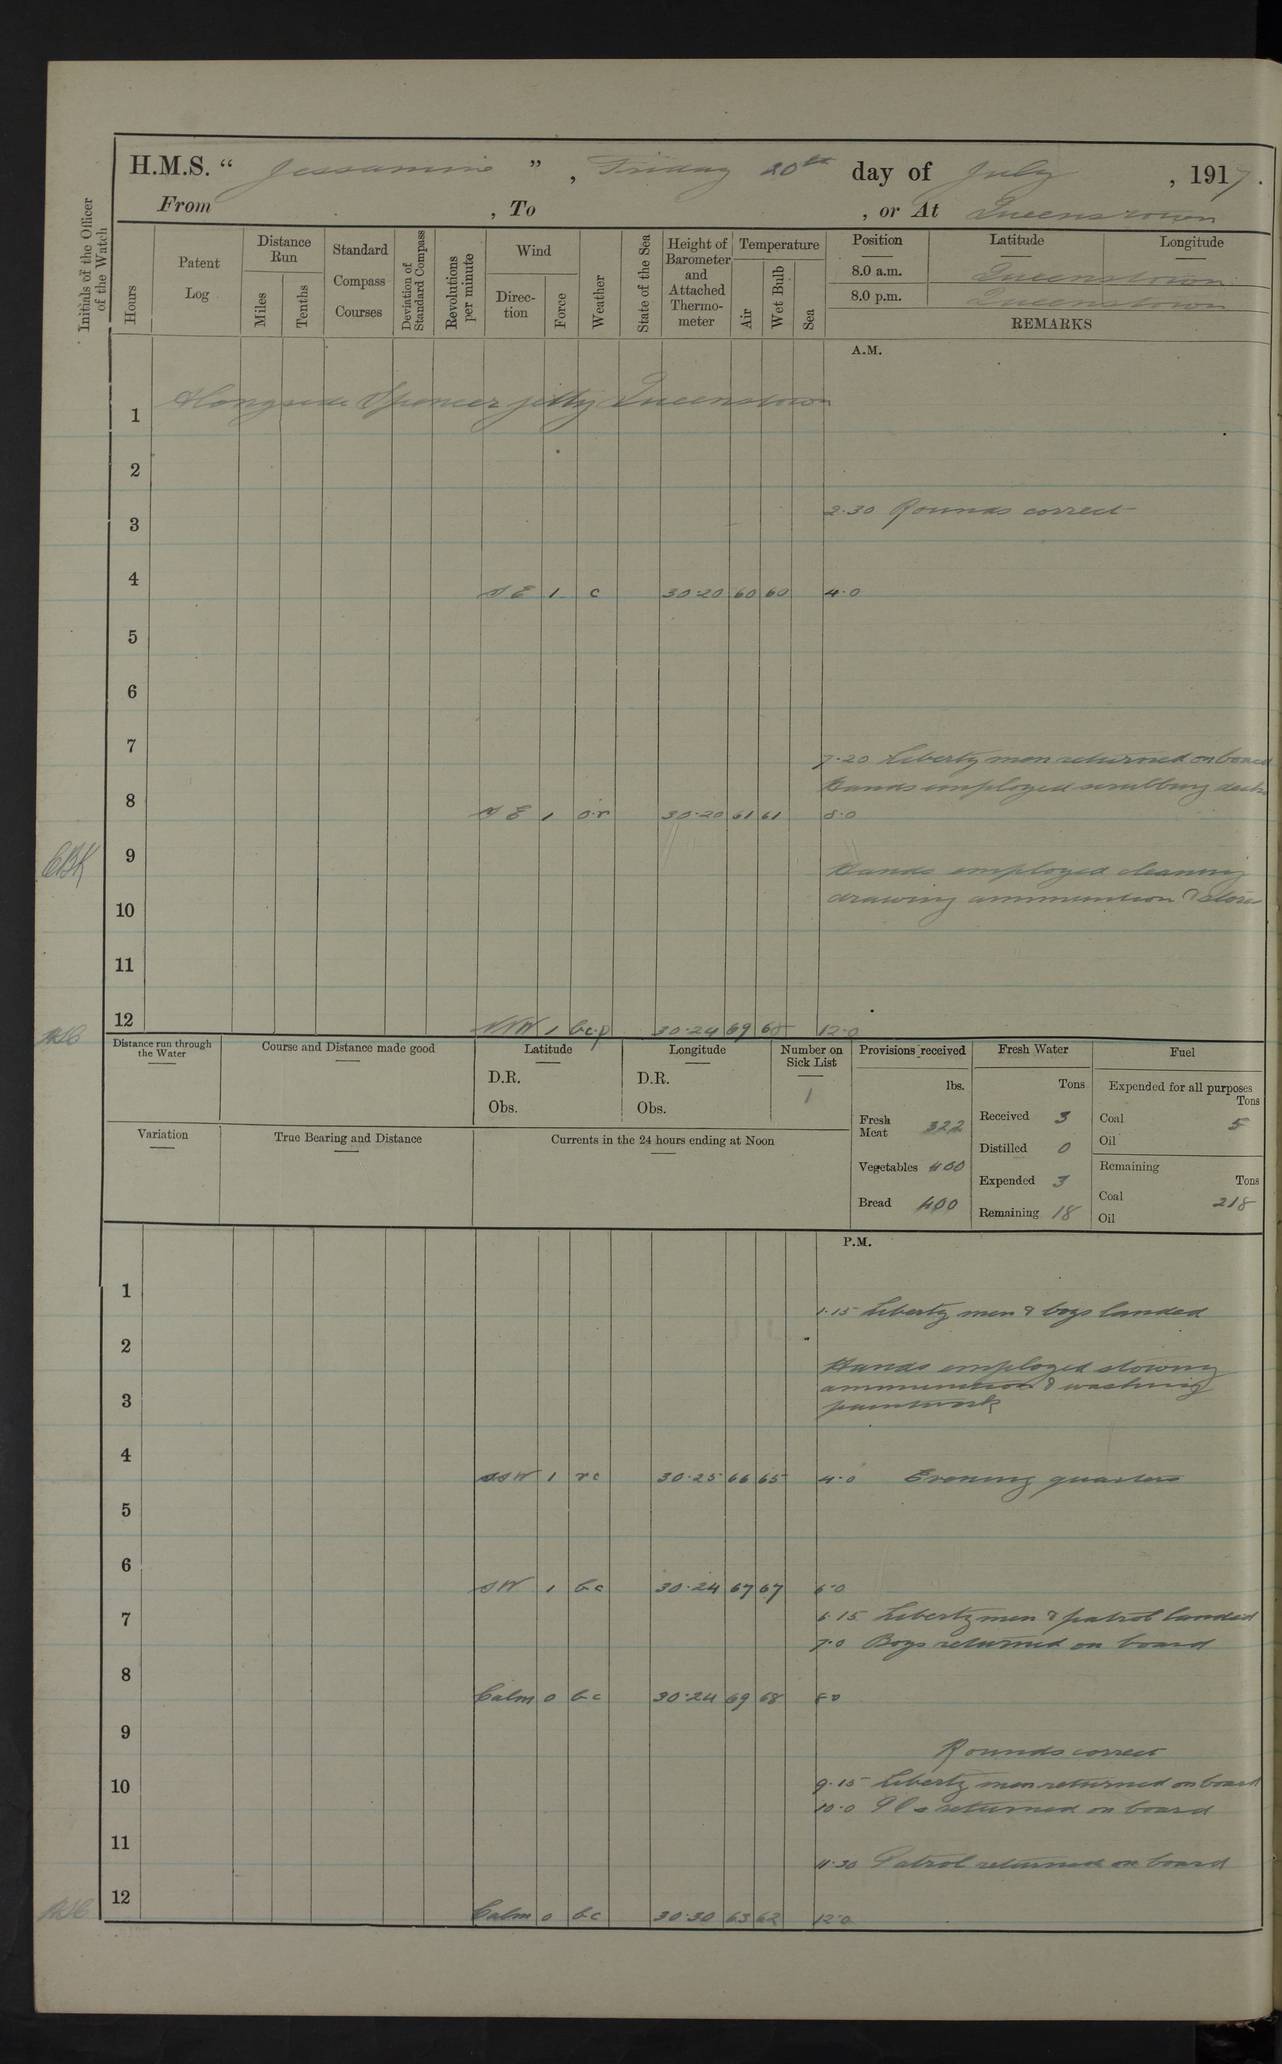 H.M.S. “ Jessamine ” , Friday 20th day of July , 1917.
From , To , or At Queenstown
Initials of the Officer of the Watch
Hours
Patent Log
Distance Run
Miles
Tenths
Standard Compass Courses
Deviation of Standard Compass
Revolutions per minute
Wind
Direc-tion
Force
Weather
State of the Sea
Height of Barometer and Attached Thermo-meter
Temperature
Air
Wet Bulb
Sea
Position Latitude Longitude
8.0 a.m. Queenstown
8.0 p.m. Queenstown
REMARKS
A.M.
Alongside Spencer jetty Queenstown
1
2
2.30 Rounds correct
3
4 SE 1 c 30.20 60 60 4.0
5
6
7
7.20 Liberty men returned on board
Hands employed scrubbing decks
8 SE 1 o.r 30.20 61 61 8.0
9
CBK
Hands employed cleaning
drawing ammunition & stores
10
11
12 NNW 1 b.c.p 30.24 69 68 12.0
Distance run through the Water
Course and Distance made good
Latitude
D.R.
Obs.
Longitude
D.R.
Obs.
Number on Sick List
1
Provisions received
lbs.
Fresh Meat 322
Vegetables 400
Bread 400
Fresh Water
Tons
Received 3
Distilled 0
Expended 3
Remaining 18
Fuel
Expended for all purposes
Tons
Coal 5
Oil
Remaining
Tons
Coal 218
Oil
Variation
True Bearing and Distance
Currents in the 24 hours ending at Noon
P.M.
1
1.15 Liberty men & boys landed
2
Hands employed stowing
ammunition & washing
paintwork
3
4 SSW 1 rc 30.25 66 65 4.0 Evening quarters
5
6 SW 1 bc 30.24 67 67 6.0
6.15 Liberty men & patrol landed
7
7.0 Boys returned on board
8 Calm 0 bc 30.24 69 68 8.0
9
Rounds correct
9.15 Liberty men returned on board
10
10.0 returned on board
11
11.30 Patrol returned on board
12 Calm 0 bc 30.30 63 62 12.0